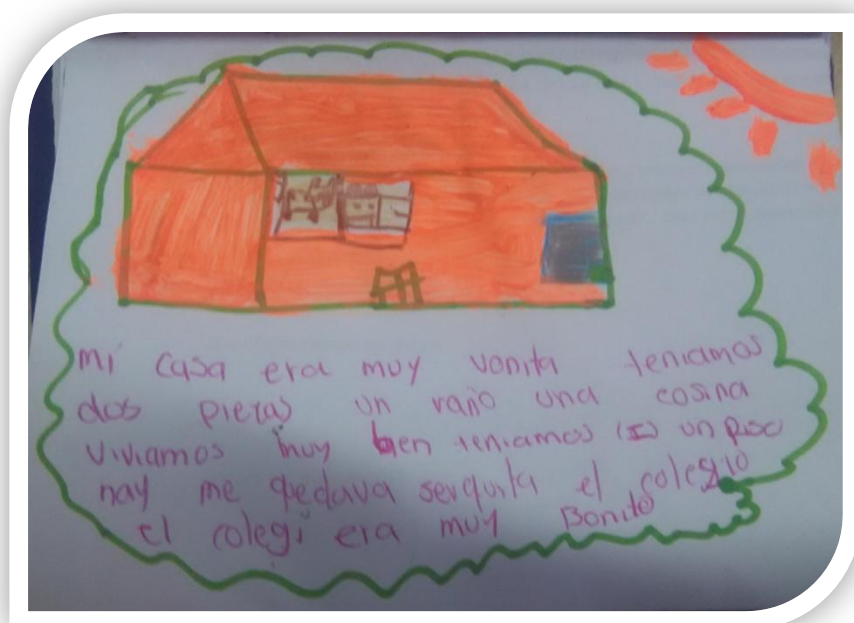 mi casa era muy vonita teniamos
dos piezas un vaño una cosina
viviamos muy bien teniamos (I) un piso
hay me quedava serquita el colegio
el colegi era muy Bonito